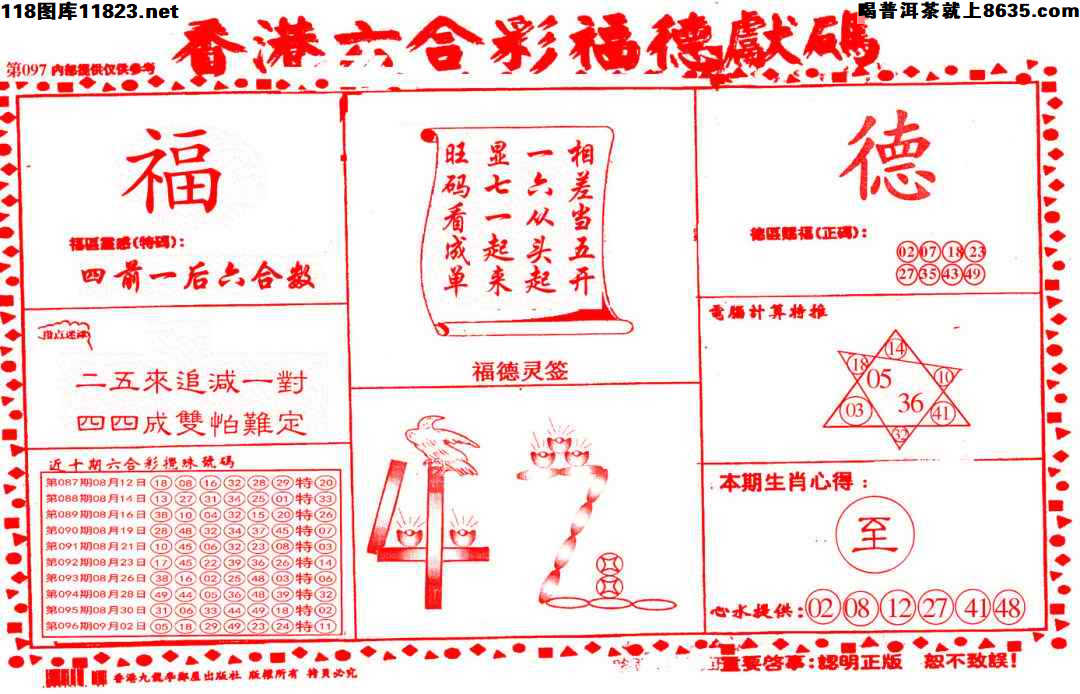 118图库11823.net
喝普洱茶就上8635.com
香港六合彩福德獻碼
第097 内部提供仅供参考
福
福區靈感(特碼):
四前一后六合数
指点迷津
二五來追減一對
四四成雙怕難定
近十期六合彩攪珠號碼
第087期08月12日 18 08 16 32 28 29 特 20
第088期08月14日 13 27 31 34 25 01 特 33
第089期08月16日 38 10 04 32 15 20 特 26
第090期08月19日 28 48 32 34 37 45 特 07
第091期08月21日 10 45 06 32 23 08 特 03
第092期08月23日 17 45 22 39 36 26 特 14
第093期08月26日 38 16 02 25 48 03 特 06
第094期08月28日 49 44 05 36 48 39 特 32
第095期08月30日 31 06 33 44 49 18 特 02
第096期09月02日 05 18 29 49 23 24 特 11
相差当五开
一六从头起
显七一起来
旺码看成单
福德灵签
德
德區賜福(正碼):
02 07 18 23
27 35 43 49
電腦計算特推
14
18 05 10
03 36 41
32
本期生肖心得:
至
心水提供: 02 08 12 27 41 48
香港九龍李鄭屋出版社 版權所有 拷貝必究
重要啓事:認明正版 恕不致誤!